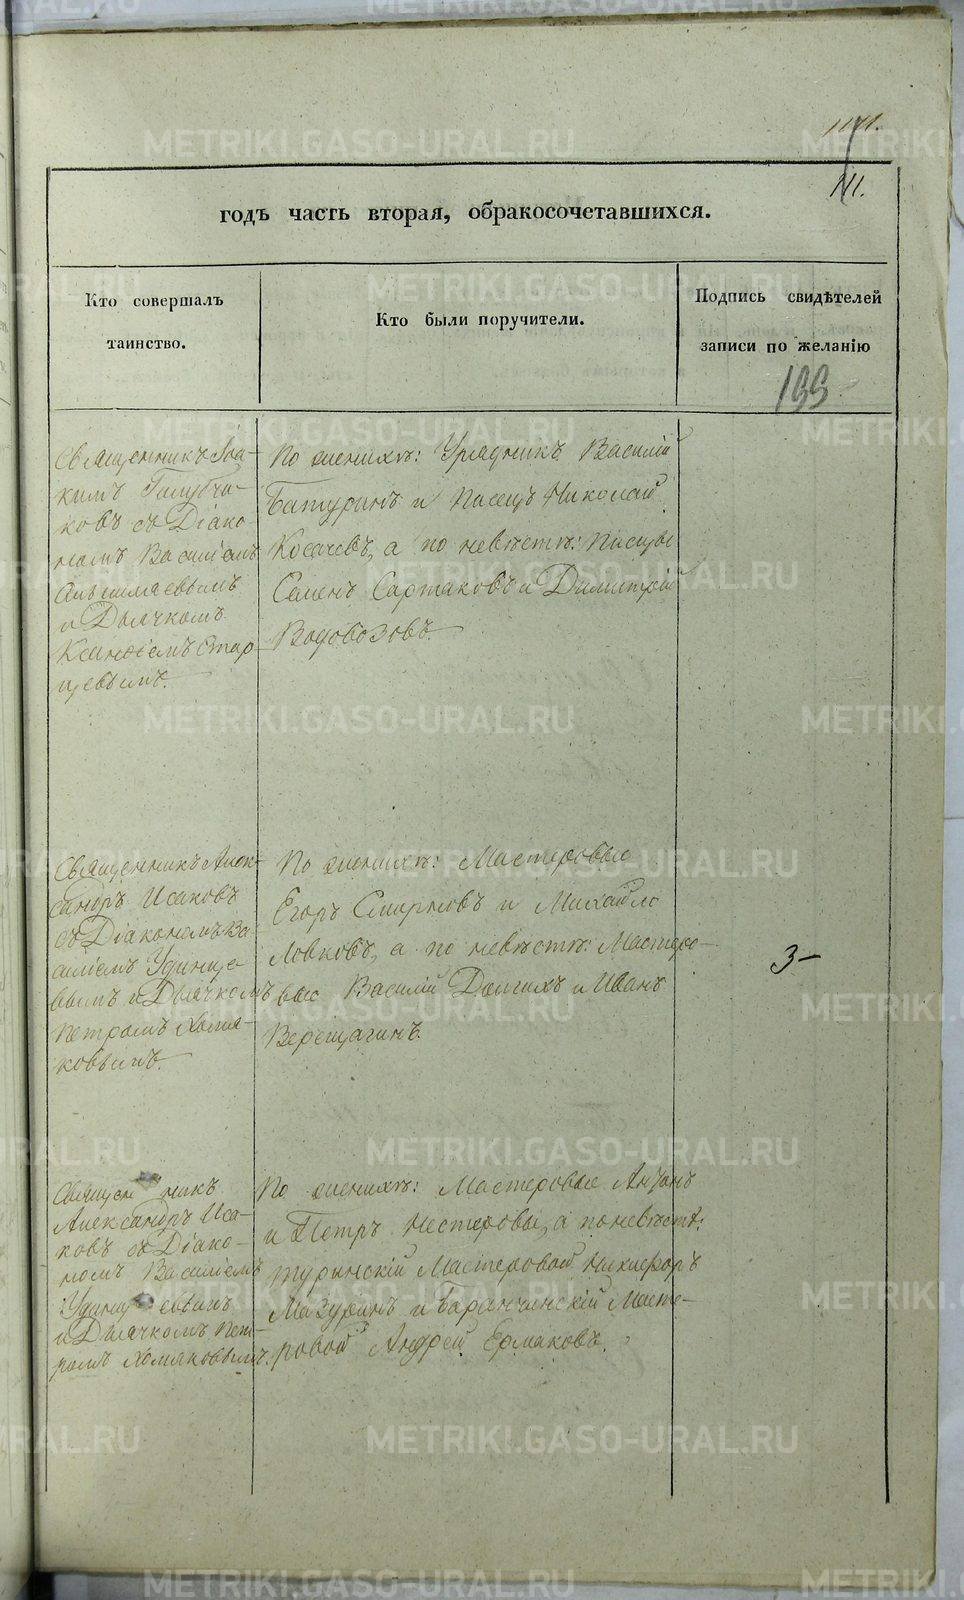 111.
годъ часть вторая, обракосочетавшихся.
Кто совершалъ
таинство.
Кто были поручители.
Подпись свидѣтелей
записи по желанію
199
Священникъ Іоа-
кимъ Голубчи-
ковъ съ Діако-
номъ Василіемъ
и Дьячкомъ
Ксенофомъ Стар
цевымъ.
По женихѣ: Урядникъ Василій
Батуринъ и Писецъ Николай
Косачевъ, а по невѣстѣ: Писцы
Семенъ Сартаковъ и Димитрій
Водовозовъ.
Священникъ Алек-
сандръ Исаковъ
съ Діакономъ Ва-
силіемъ Удинце-
вымъ и Дьячкомъ
Петромъ Хомя-
ковымъ.
По женихѣ: Мастеровые
Егоръ Смирновъ и Михайло
Ловковъ, а по невѣстѣ: Мастеро-
вые Василій Долгихъ и Иванъ
Верещагинъ.
3-
Священникъ
Александръ Иса-
ковъ съ Діако-
номъ Василіемъ
Удинцевымъ
и Дьячкомъ Пет-
ромъ Хомяковымъ.
По женихѣ: Мастеровые Антонъ
и Петръ Нестеровы, а по невѣстѣ:
туринскій Мастеровой Никифоръ
Мазуринъ и Баранчинскій Масте-
ровой Андрей Ермаковъ.
METRIKI.GASO-URAL.RU